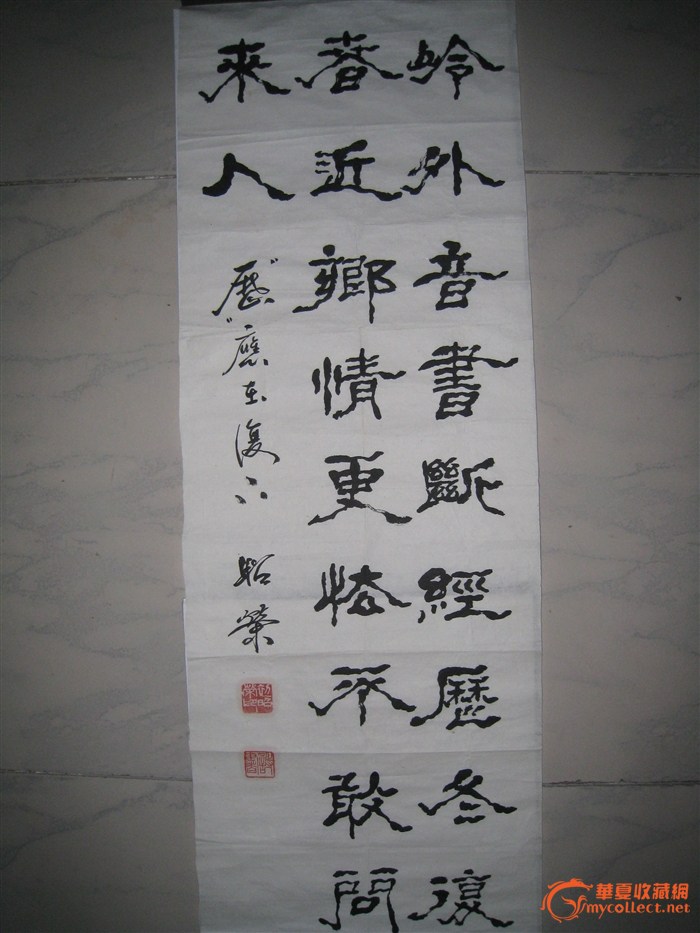 岭外音書斷經歷冬復
春近鄉情更怯不敢問
來人
"歷"應在復下 榮
華夏收藏網
mycollect.net